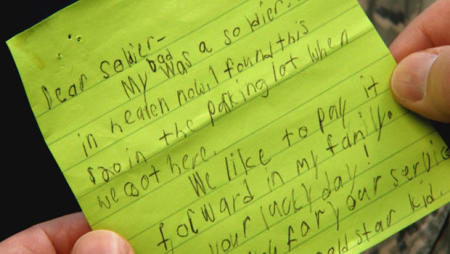 Dear soldier-
My dad was a soldier.
in heaven now. I found this
in the parking lot when
we got here.
We like to pay it
forward in my family.
your lucky day!
for your service
star kid.